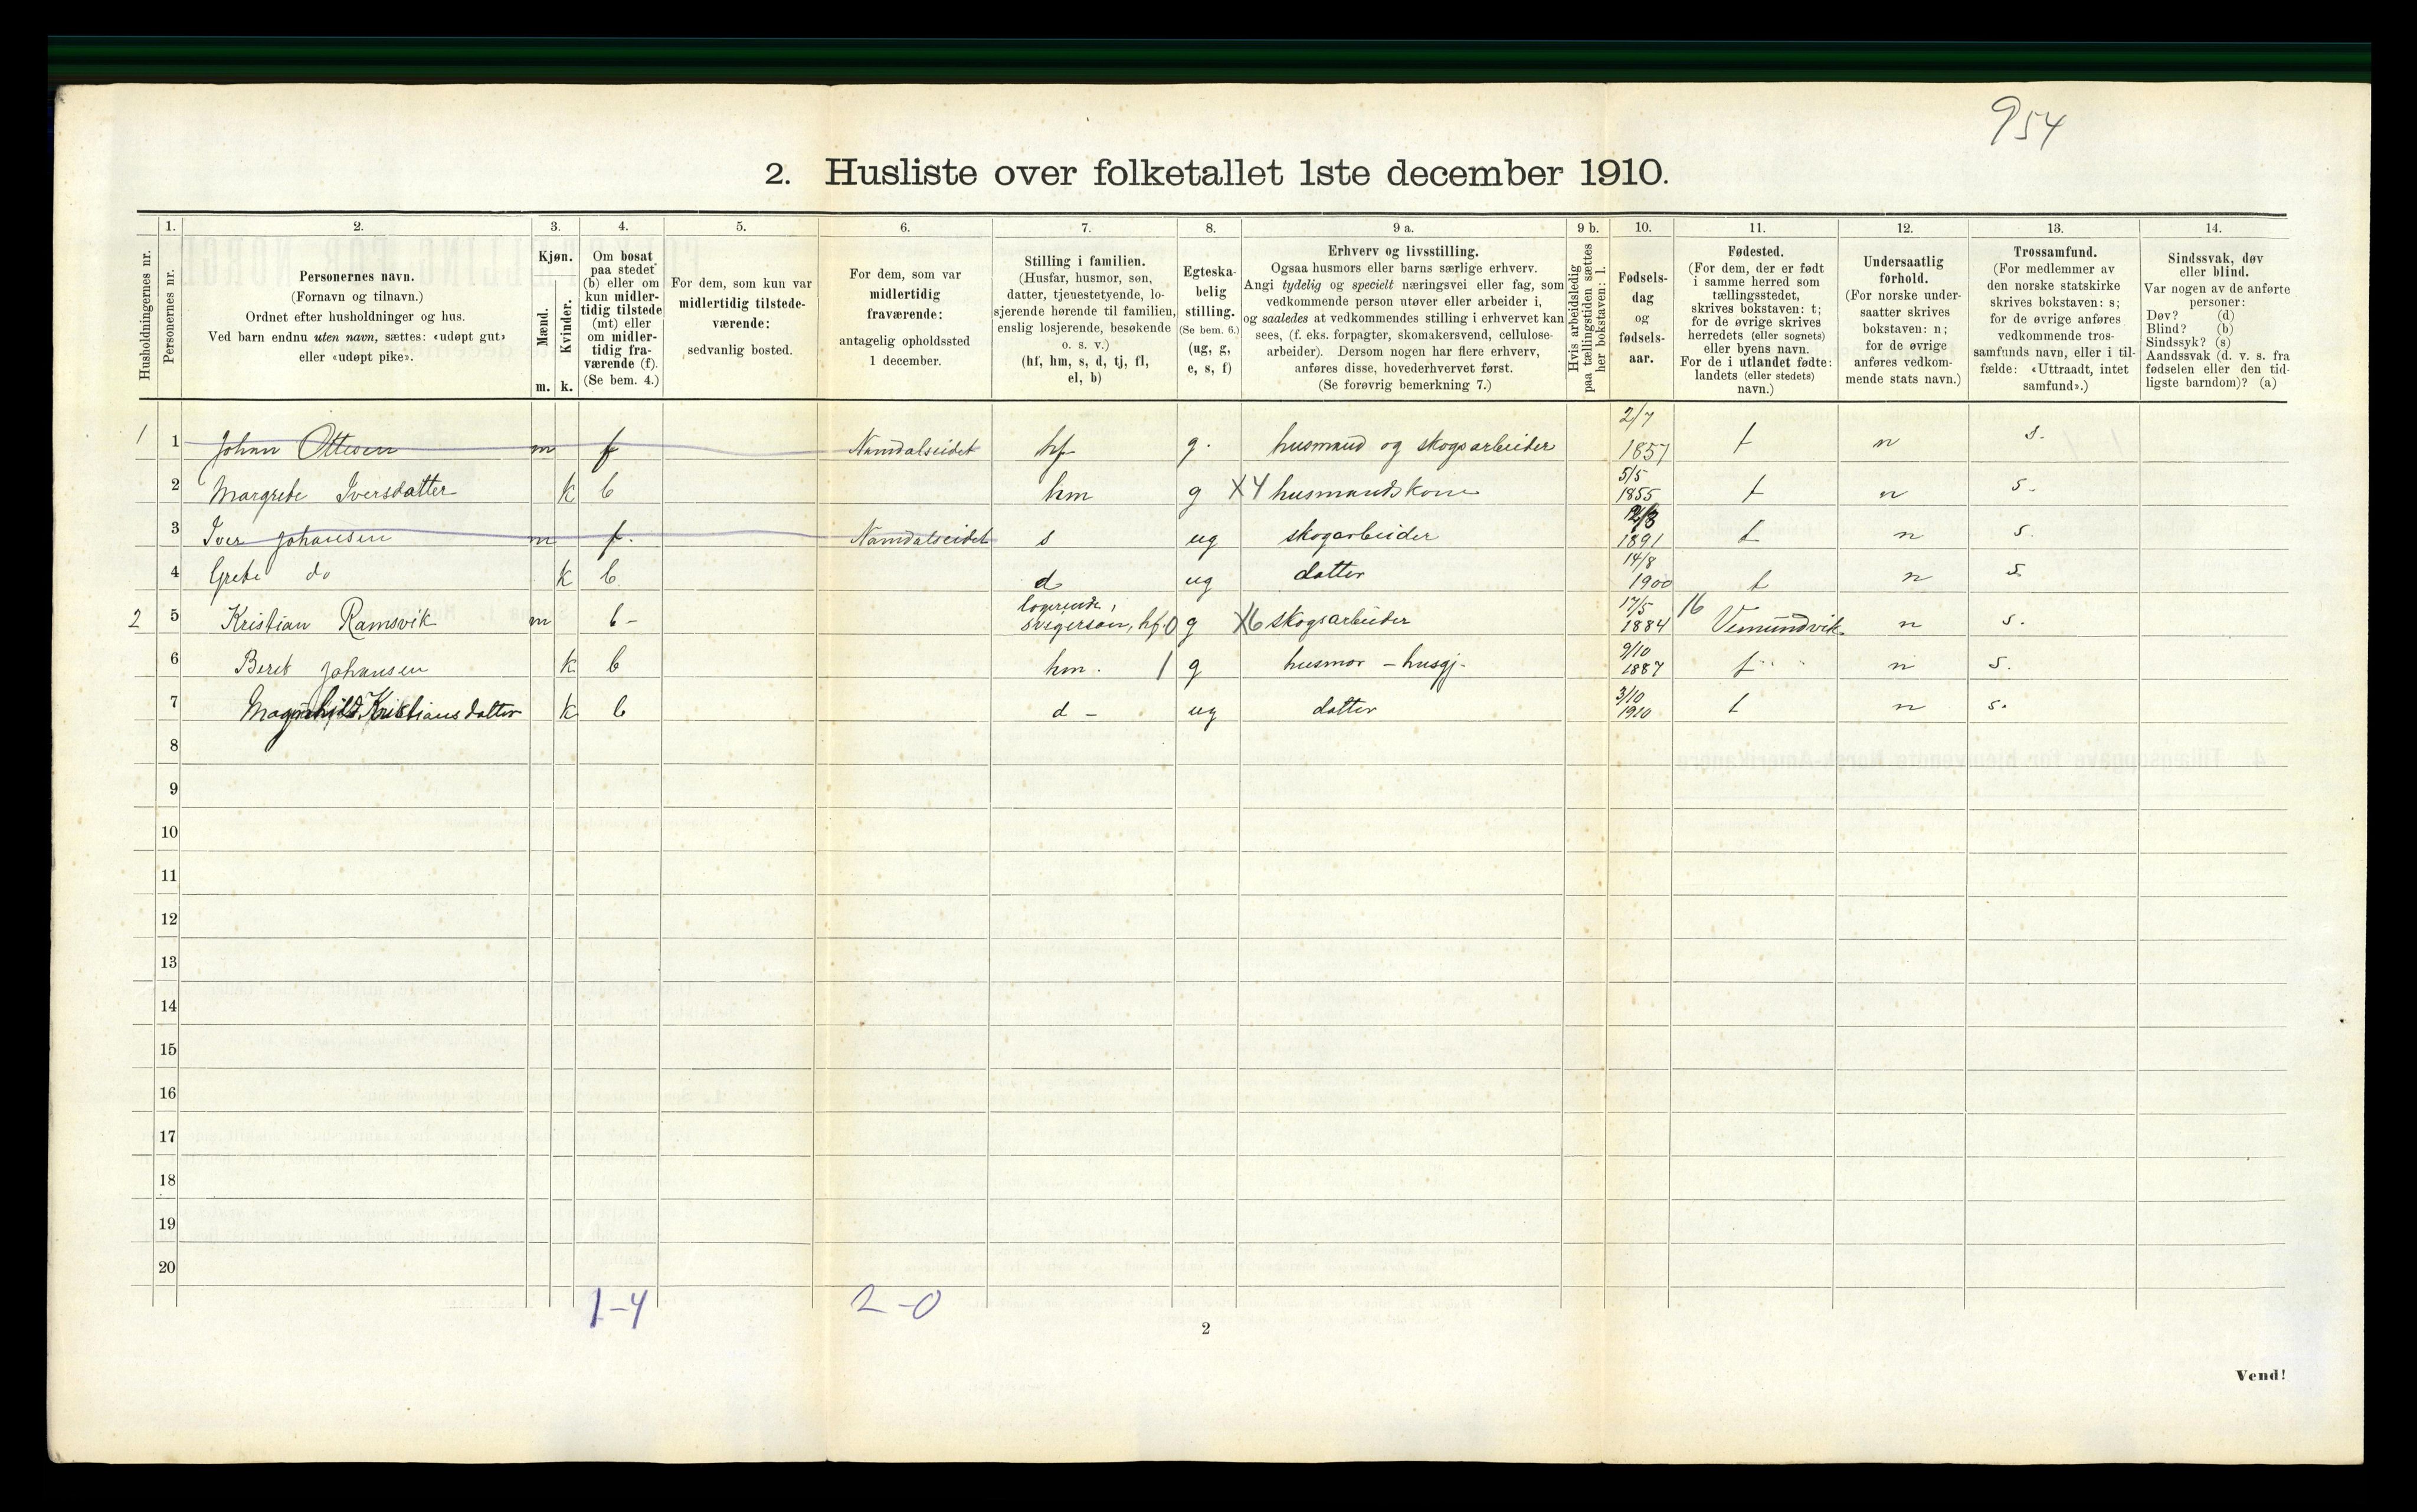 954
2. Husliste over folketallet 1ste december 1910.
1. 2. 3. 4. 5. 6. 7. 8. 9 a. 9 b. 10. 11. 12. 13. 14.
Husholdningernes nr.
Personernes nr.
Personernes navn.
(Fornavn og tilnavn.)
Ordnet efter husholdninger og hus.
Ved barn endnu uten navn, sættes: «udøpt gut»
eller «udøpt pike».
Kjøn.
Mænd.
Kvinder.
m. k.
Om bosat
paa stedet
(b) eller om
kun midler-
tidig tilstede
(mt) eller
om midler-
tidig fra-
værende (f).
(Se bem. 4.)
For dem, som kun var
midlertidig tilstede-
værende:
sedvanlig bosted.
For dem, som var
midlertidig
fraværende:
antagelig opholdssted
1 december.
Stilling i familien.
(Husfar, husmor, søn,
datter, tjenestetyende, lo-
sjerende hørende til familien,
enslig losjerende, besøkende
o. s. v.)
(hf, hm, s, d, tj, fl,
el, b)
Egteska-
belig
stilling.
(Se bem. 6.)
(ug, g,
e, s, f)
Erhverv og livsstilling.
Ogsaa husmors eller barns særlige erhverv.
Angi tydelig og specielt næringsvei eller fag, som
vedkommende person utøver eller arbeider i,
og saaledes at vedkommendes stilling i erhvervet kan
sees, (f. eks. forpagter, skomakersvend, cellulose-
arbeider). Dersom nogen har flere erhverv,
anføres disse, hovederhvervet først.
(Se forøvrig bemerkning 7.)
Hvis arbeidsledig
paa tællingstiden sættes
her bokstaven: l.
Fødsels-
dag
og
fødsels-
aar.
Fødested.
(For dem, der er født
i samme herred som
tællingsstedet,
skrives bokstaven: t;
for de øvrige skrives
herredets (eller sognets)
eller byens navn.
For de i utlandet fødte:
landets (eller stedets)
navn.)
Undersaatlig
forhold.
(For norske under-
saatter skrives
bokstaven: n;
for de øvrige
anføres vedkom-
mende stats navn.)
Trossamfund.
(For medlemmer av
den norske statskirke
skrives bokstaven: s;
for de øvrige anføres
vedkommende tros-
samfunds navn, eller i til-
fælde: «Uttraadt, intet
samfund».)
Sindssvak, døv
eller blind.
Var nogen av de anførte
personer:
Døv? (d)
Blind? (b)
Sindssyk? (s)
Aandssvak (d. v. s. fra
fødselen eller den tid-
ligste barndom)? (a)
1 1 Johan Ottesen m f Namdalseidet hf g. husmand og skogsarbeider 2/7 1857 t n s.
2 Margrete Iversdatter k b hm g X4 husmandskone 5/5 1855 t n s.
3 Iver Johansen m f. Namdalseidet s ug skogarbeider 1891 t n s.
4 Grete do k b d ug datter 14/8 1900 t n s.
2 5 Kristian Ramsvik m b - logerende, svigersøn, hf. 0 g X6 skogsarbeider 17/5 1884 16 Vemundvik n s.
6 Beret Johansen k b hm. 1 g husmor - husgj. 9/10 1887 t n s.
7 Magnhild Kristiansdatter k b d - ug datter 3/10 1910 t n s.
8
9
10
11
12
13
14
15
16
17
18
19
20
1-4 2-0
2
Vend!